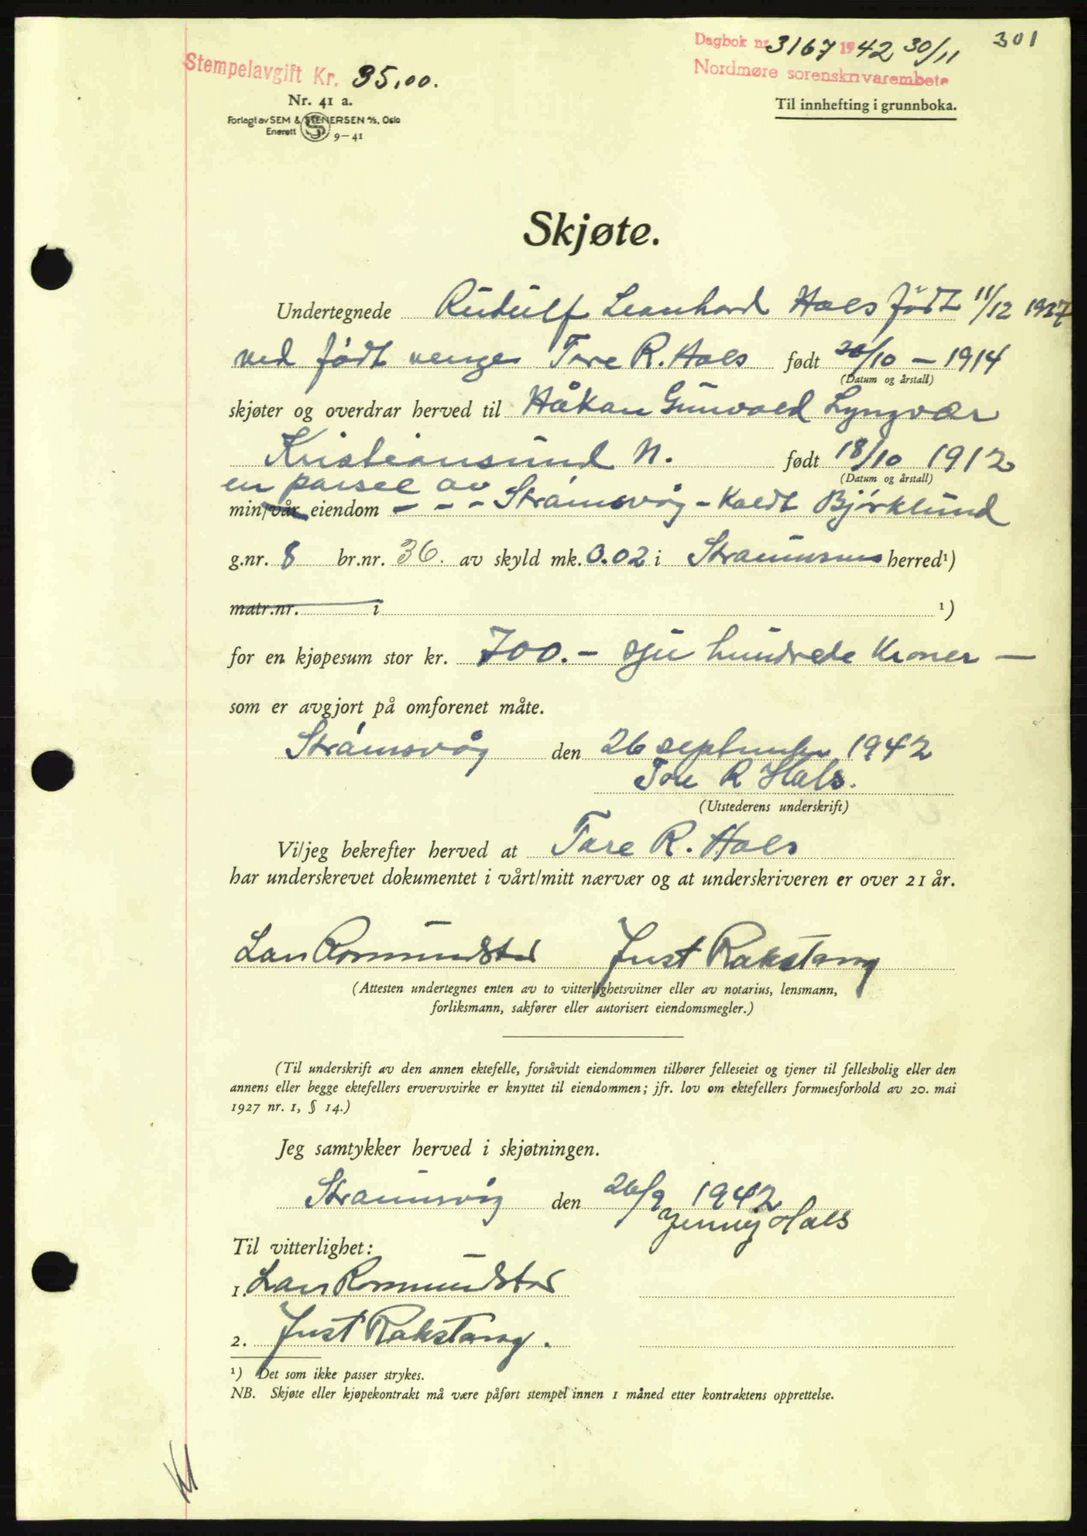 301
Dagbok nr. 3167 1942 30/11
Nordmøre sorenskrivarembete
Stempelavgift Kr. 35,00.
Nr. 41 a.
Forlagt av SEM & STENERSEN A/S, Oslo
Enerett S 9-41
Til innhefting i grunnboka.
Skjøte.
Undertegnede Rudulf Leonhard Hals født 11/12 1927
ved født verge Tore R. Hals født 26/10 - 1914
(Datum og årstall)
skjøter og overdrar herved til Håkan Gunvald Lyngvær
Kristiansund N. født 18/10 1912
(Datum og årstall)
en parsel av
min/vår eiendom - - - Straumsvåg - Kaldt Bjørklund
g.nr. 8 br.nr. 36. av skyld mk. 0.02 i Straumsnes herred¹)
matr.nr. i ¹)
for en kjøpesum stor kr. 700.- sju hundrede Kroner —
som er avgjort på omforenet måte.
Straumsvåg den 26 september 1942
Tore R Hals.
(Utstederens underskrift)
Vi/jeg bekrefter herved at Tore R. Hals
har underskrevet dokumentet i vårt/mitt nærvær og at underskriveren er over 21 år.
Lars Romundstad Just Rakstang
(Attesten undertegnes enten av to vitterlighetsvitner eller av notarius, lensmann,
forliksmann, sakfører eller autorisert eiendomsmegler.)
(Til underskrift av den annen ektefelle, forsåvidt eiendommen tilhører felleseiet og tjener til fellesbolig eller den
annens eller begge ektefellers ervervsvirke er knyttet til eiendommen; jfr. lov om ektefellers formuesforhold av 20. mai
1927 nr. 1, § 14.)
Jeg samtykker herved i skjøtningen.
Straumsvåg den 26/9 1942
Jenny Hals
Til vitterlighet:
1. Lars Romundstad
2. Just Rakstang.
¹) Det som ikke passer strykes.
NB. Skjøte eller kjøpekontrakt må være påført stempel innen 1 måned etter kontraktens opprettelse.